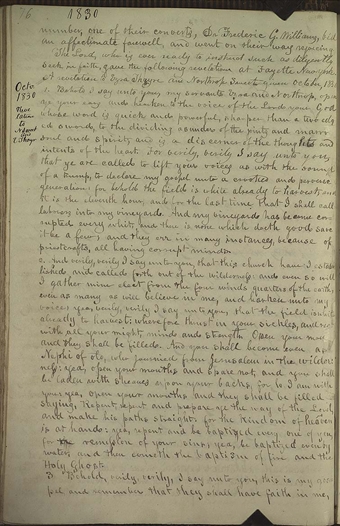 76 1830
number, one of their converts, Dr. Frederic G. Williams, bid
an affectionate farewell, and went on their way rejoicing.
The Lord, who is ever ready to instruct such as diligently
seek in faith, gave the following revelation at Fayette New York.
A revelation to Ezra Thayre and Northrop Sweet given October, 1830
Octo.
1830
Revelation
to
N. Sweet
and
E. Thayre
1. Behold I say unto you, my servants Ezra and Northrop, open
ye your ears and hearken to the voice of the Lord your God
whose word is quick and powerful, sharper than a two edg
ed sword, to the dividing asunder of the joints and marrow
soul and spirit; and is a discerner of the thoughts and
intents of the heart. For verily, verily I say unto you,
that ye are called to lift your voices as with the sound
of a trump, to declare my gospel unto a crooked and perverse
generation: for behold the field is white already to harvest; and
it is the eleventh hour, and for the last time that I shall call
laborers into my vineyard. And my vineyard has become cor-
rupted every whit; and there is none which doeth good save
it be a few; and they err in many instances, because of
priestcrafts, all having corrupt minds.
2. And verily, verily I say unto you, that this church have I estab
lished and called forth out of the wilderness: and even so will
I gather mine elect from the four winds quarters of the earth,
even as many as will believe in me, and hearken unto my
voice: yea, verily, verily I say unto you, that the field is white
already to harvest: wherefore thrust in your sickles, and reap
with all your might, mind and strength. Open your mouths
and they shall be filled; and you shall become even as
Nephi of old, who journied from Jerusalem in the wilder
ness: yea, open your mouths and spare not, and you shall
be laden with sheaves upon your backs, for lo I am with
you: yea, open your mouths and they shall be filled
saying, repent, repent and prepare ye the way of the Lord,
and make his paths straight: for the kingdom of heaven
is at hand: yea, repent and be baptized every one of you
for the remission of your sins; yea, be baptized even by
water, and then cometh the baptism of fire and the
Holy Ghost.
3 Behold, verily, verily, I say unto you, this is my gos
pel and remember that they shall have faith in me,